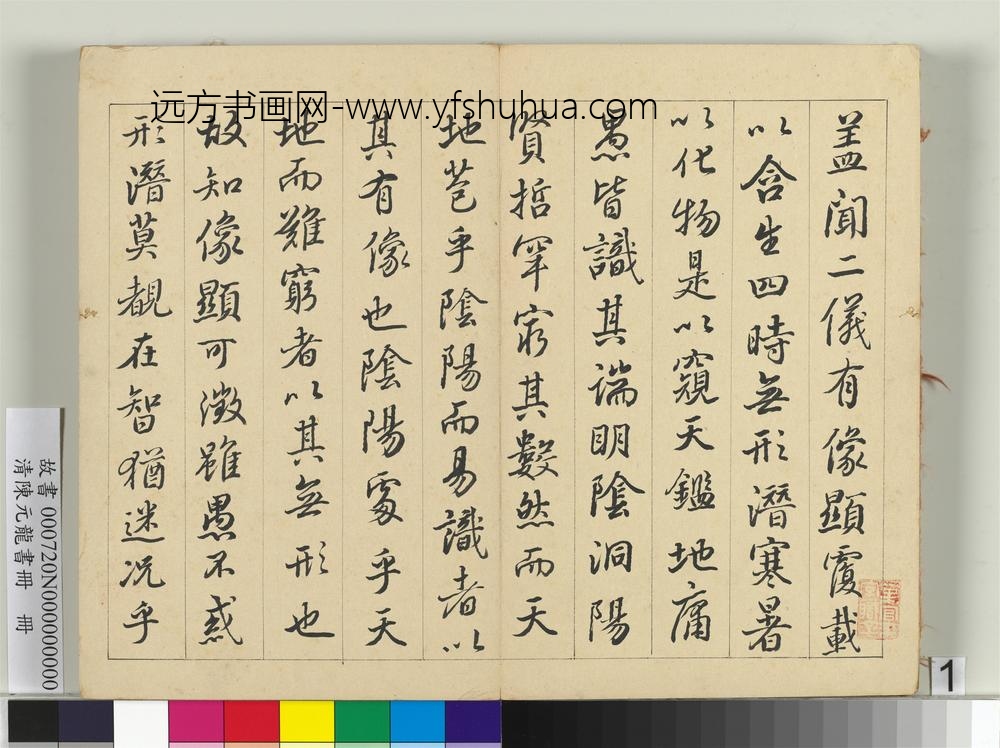 远方书画网-www.yfshuhua.com
盖聞二儀有像顯覆載
以含生四時無形潛寒暑
以化物是以窺天鑑地庸
愚皆識其端明陰洞陽
賢哲罕窮其數然而天
地苞乎陰陽而易識者以
其有像也陰陽處乎天
地而難窮者以其無形也
故知像顯可徵雖愚不惑
形潛莫覩在智猶迷况乎
故書 000720N000000000
清陳元龍書冊 冊
1